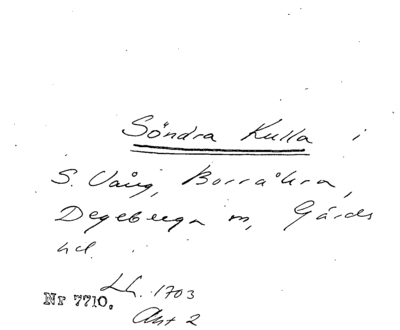 Söndra Kulla i
S. Vång, Borråkra,
Degeberga sn, Gärds
hd.
Lh. 1703
Nr 7710.
Akt 2